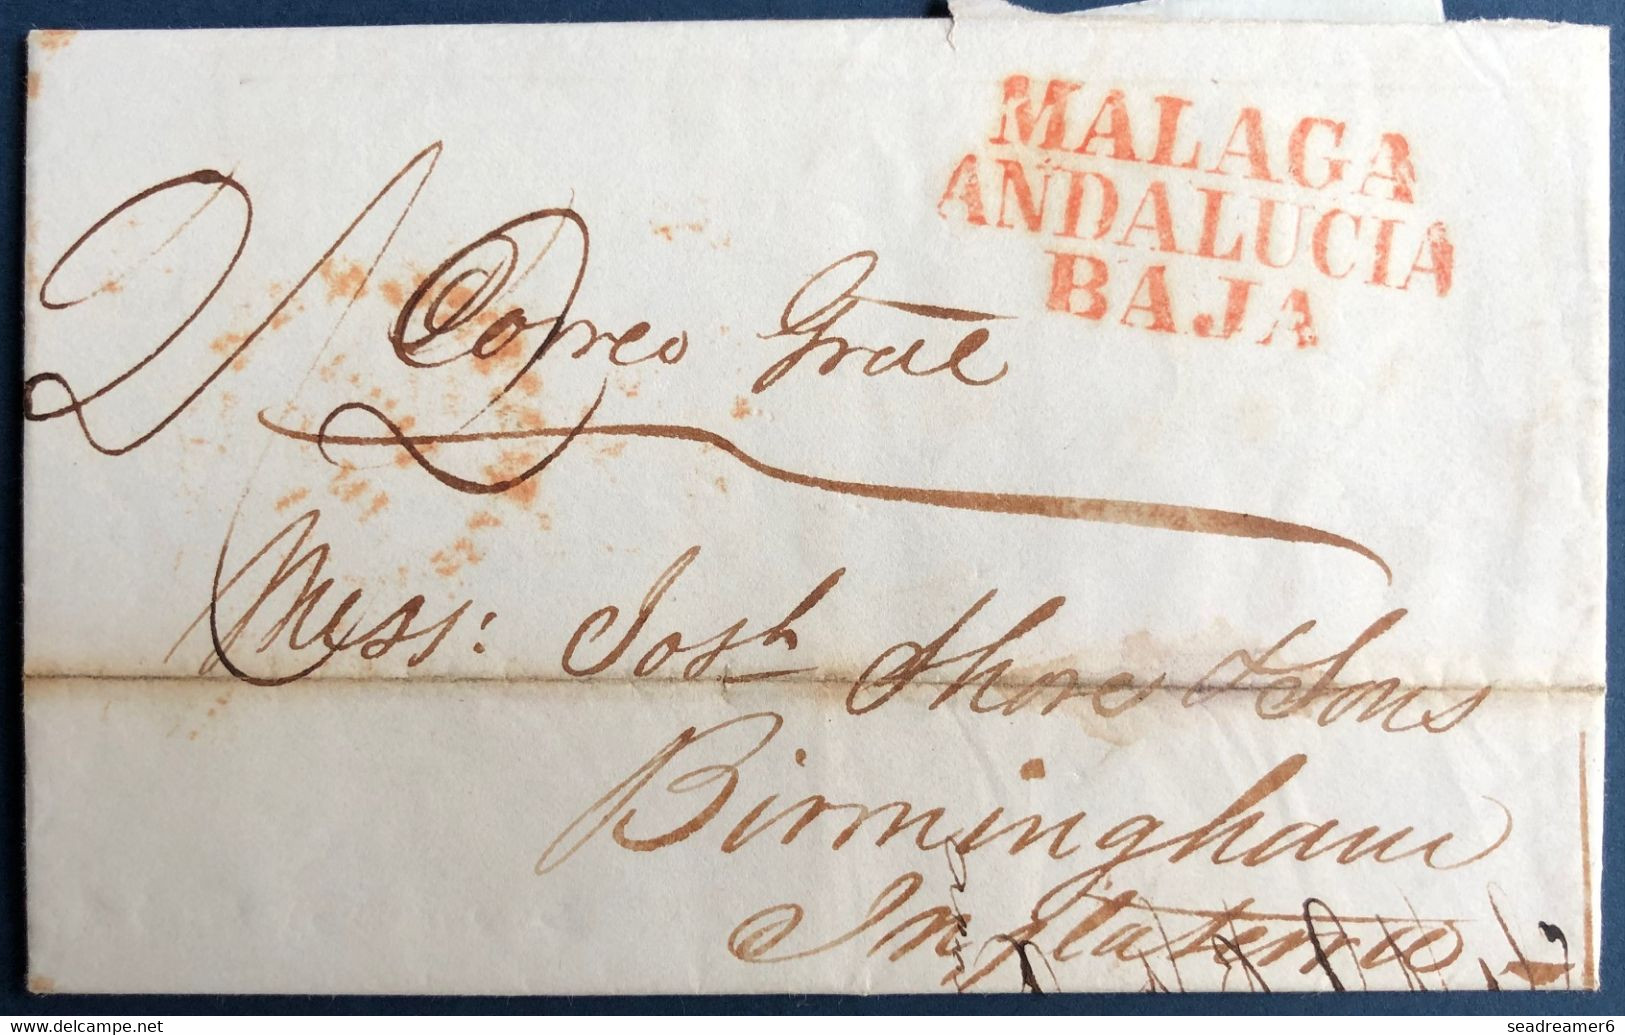 MALAGA
ANDALUCIA
BAJA
2/2
Correo Gral
Mess: Josh Shore & Sons
Birmingham
Inglaterra
www.delcampe.net
seadreamer6